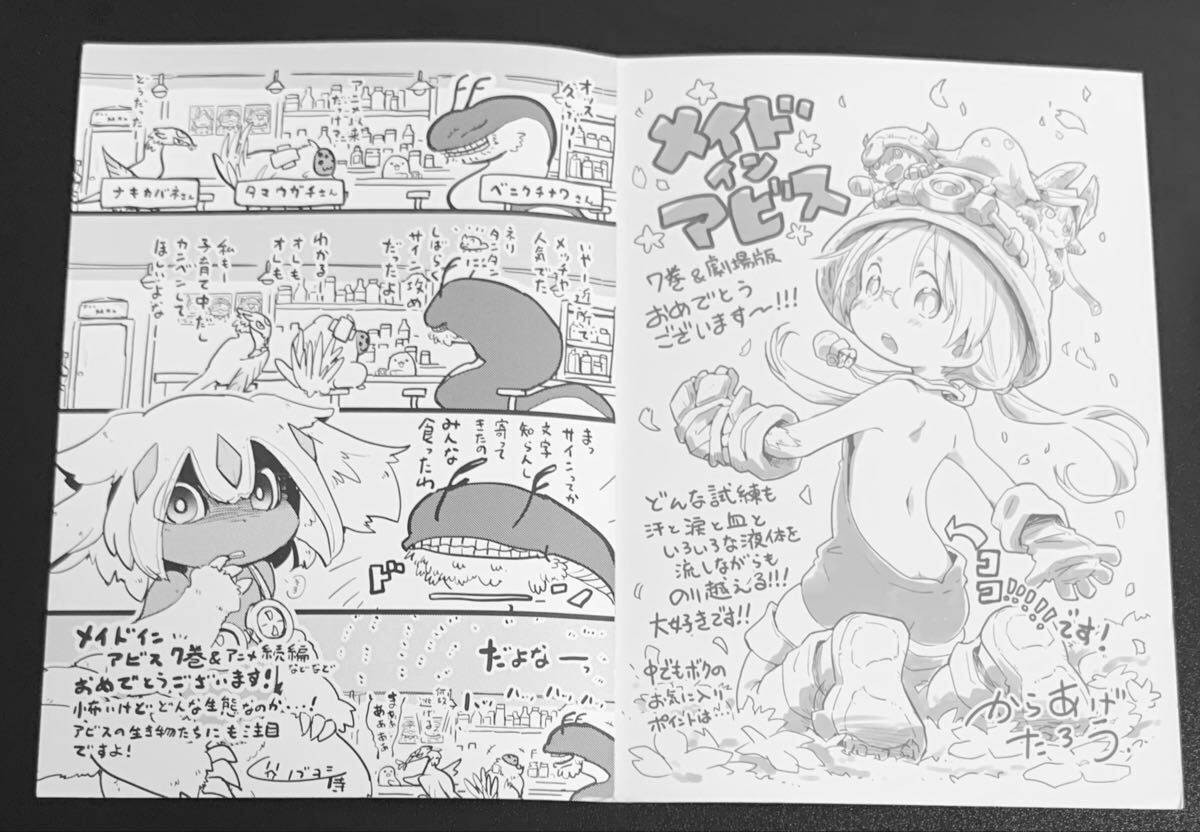 オッス
久しぶり
アニメ出来
どうだったー
ナキカバネさん
タマウガチさん
ベニクチナワさん
いやー近所で
メッチャ
人気でな
ネリ
タンタン
しばらく
サイン攻め
だったよ
わかる!
オレも
オレも
私も
子育て中だし
カンベンして
ほしいよなー
まっ
サインってか
文字
知らんし
寄って
きたの
みんな
食ったわ
ドッ
だよなーっ
ハハッ
ハハッ
メイドイン
アビス7巻&アニメ続編
などなど
おめでとうございます!
小布いけど、どんな生態なのか…!
アビスの生き物たちにも注目
ですよ!
メイド
イン
アビス
7巻&劇場版
おめでとう
ございます〜!!!
どんな試練も
汗と涙と血と
いろいろな液体を
流しながらも
のり越える!!!
大好きです!!
中でもボクの
お気に入り
ポイントは…
ココ!!!!!です!
からあげ
たろう.